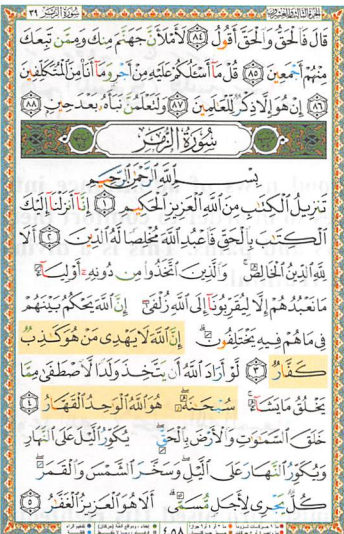 سورة الزمر ٣٩
قَالَ فَٱلْحَقُّ وَٱلْحَقَّ أَقُولُ ٨٤ لَأَمْلَأَنَّ جَهَنَّمَ مِنكَ وَمِمَّن تَبِعَكَ
مِنْهُمْ أَجْمَعِينَ ٨٥ قُلْ مَآ أَسْـَٔلُكُمْ عَلَيْهِ مِنْ أَجْرٍ وَمَآ أَنَا۠ مِنَ ٱلْمُتَكَلِّفِينَ
٨٦ إِنْ هُوَ إِلَّا ذِكْرٌ لِّلْعَـٰلَمِينَ ٨٧ وَلَتَعْلَمُنَّ نَبَأَهُۥ بَعْدَ حِينٍۭ ٨٨
سورة الزمر
بِسْمِ ٱللَّهِ ٱلرَّحْمَـٰنِ ٱلرَّحِيمِ
تَنزِيلُ ٱلْكِتَـٰبِ مِنَ ٱللَّهِ ٱلْعَزِيزِ ٱلْحَكِيمِ ١ إِنَّآ أَنزَلْنَآ إِلَيْكَ
ٱلْكِتَـٰبَ بِٱلْحَقِّ فَٱعْبُدِ ٱللَّهَ مُخْلِصًا لَّهُ ٱلدِّينَ ٢ أَلَا
لِلَّهِ ٱلدِّينُ ٱلْخَالِصُ ۚ وَٱلَّذِينَ ٱتَّخَذُوا۟ مِن دُونِهِۦٓ أَوْلِيَآءَ
مَا نَعْبُدُهُمْ إِلَّا لِيُقَرِّبُونَآ إِلَى ٱللَّهِ زُلْفَىٰٓ إِنَّ ٱللَّهَ يَحْكُمُ بَيْنَهُمْ
فِى مَا هُمْ فِيهِ يَخْتَلِفُونَ ۗ إِنَّ ٱللَّهَ لَا يَهْدِى مَنْ هُوَ كَـٰذِبٌ
كَفَّارٌ ٣ لَّوْ أَرَادَ ٱللَّهُ أَن يَتَّخِذَ وَلَدًا لَّٱصْطَفَىٰ مِمَّا
يَخْلُقُ مَا يَشَآءُ ۚ سُبْحَـٰنَهُۥ ۖ هُوَ ٱللَّهُ ٱلْوَٰحِدُ ٱلْقَهَّارُ ٤
خَلَقَ ٱلسَّمَـٰوَٰتِ وَٱلْأَرْضَ بِٱلْحَقِّ ۖ يُكَوِّرُ ٱلَّيْلَ عَلَى ٱلنَّهَارِ
وَيُكَوِّرُ ٱلنَّهَارَ عَلَى ٱلَّيْلِ ۖ وَسَخَّرَ ٱلشَّمْسَ وَٱلْقَمَرَ ۖ
كُلٌّ يَجْرِى لِأَجَلٍ مُّسَمًّى ۗ أَلَا هُوَ ٱلْعَزِيزُ ٱلْغَفَّـٰرُ ٥
٤٥٨